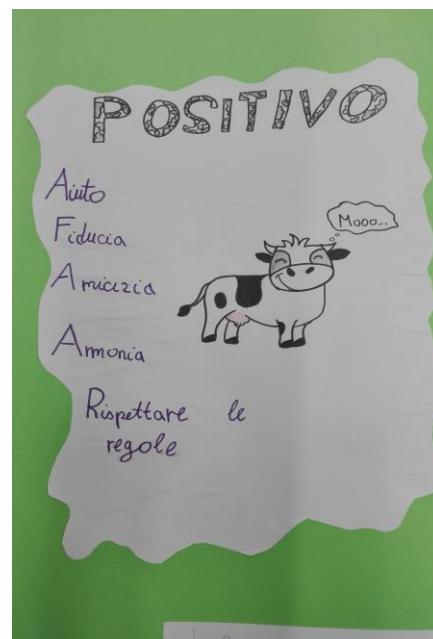 POSITIVO
Aiuto
Fiducia
Mooo...
Amicizia
Armonia
Rispettare le
regole